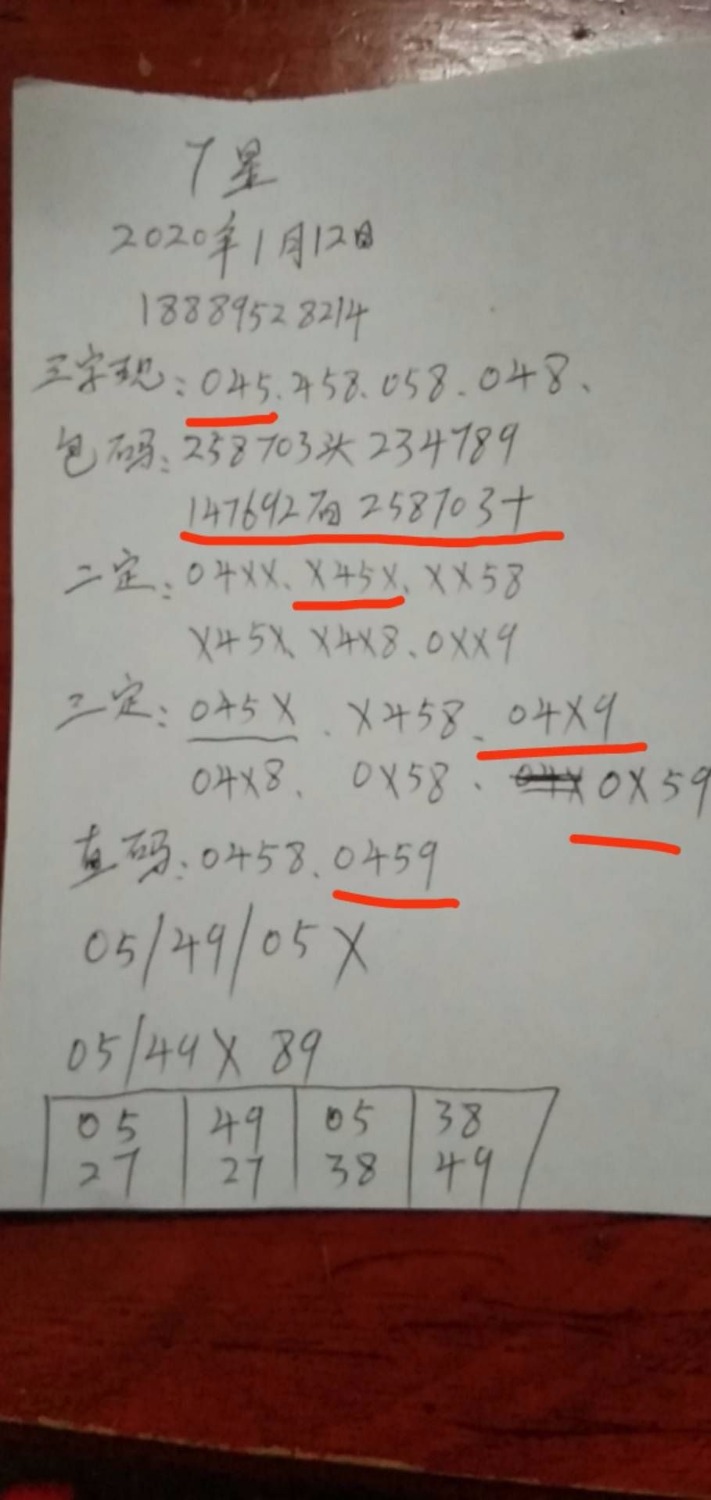 7星
2020年1月12日
18889528214
三字现:045.458.058.048、
包码:258703头234789
147692百258703十
二定:04XX、X45X、XX58
X45X、X4X8、0XX9
三定:045X、X458、04X9
04X8、0X58、0X59
直码:0458、0459
05/49/05X
05/49X89
05 49 05 38
27 27 38 49